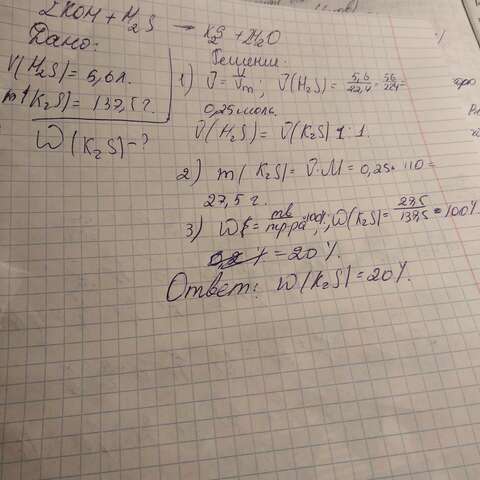 2KOH + H₂S → K₂S + 2H₂O
Дано:
V(H₂S) = 5,6 л.
m (K₂S) = 137,5 г.
W(K₂S) - ?
Решение:
1) ν = V/Vm ; ν(H₂S) = 5,6/22,4 = 56/224 =
0,25 моль.
ν(H₂S) = ν(K₂S) 1 : 1.
2) m(K₂S) = ν · M = 0,25 · 110 =
27,5 г.
3) W = mв/mр-ра · 100% ; W(K₂S) = 27,5/137,5 = 100%
= 20%.
Ответ: W(K₂S) = 20%.